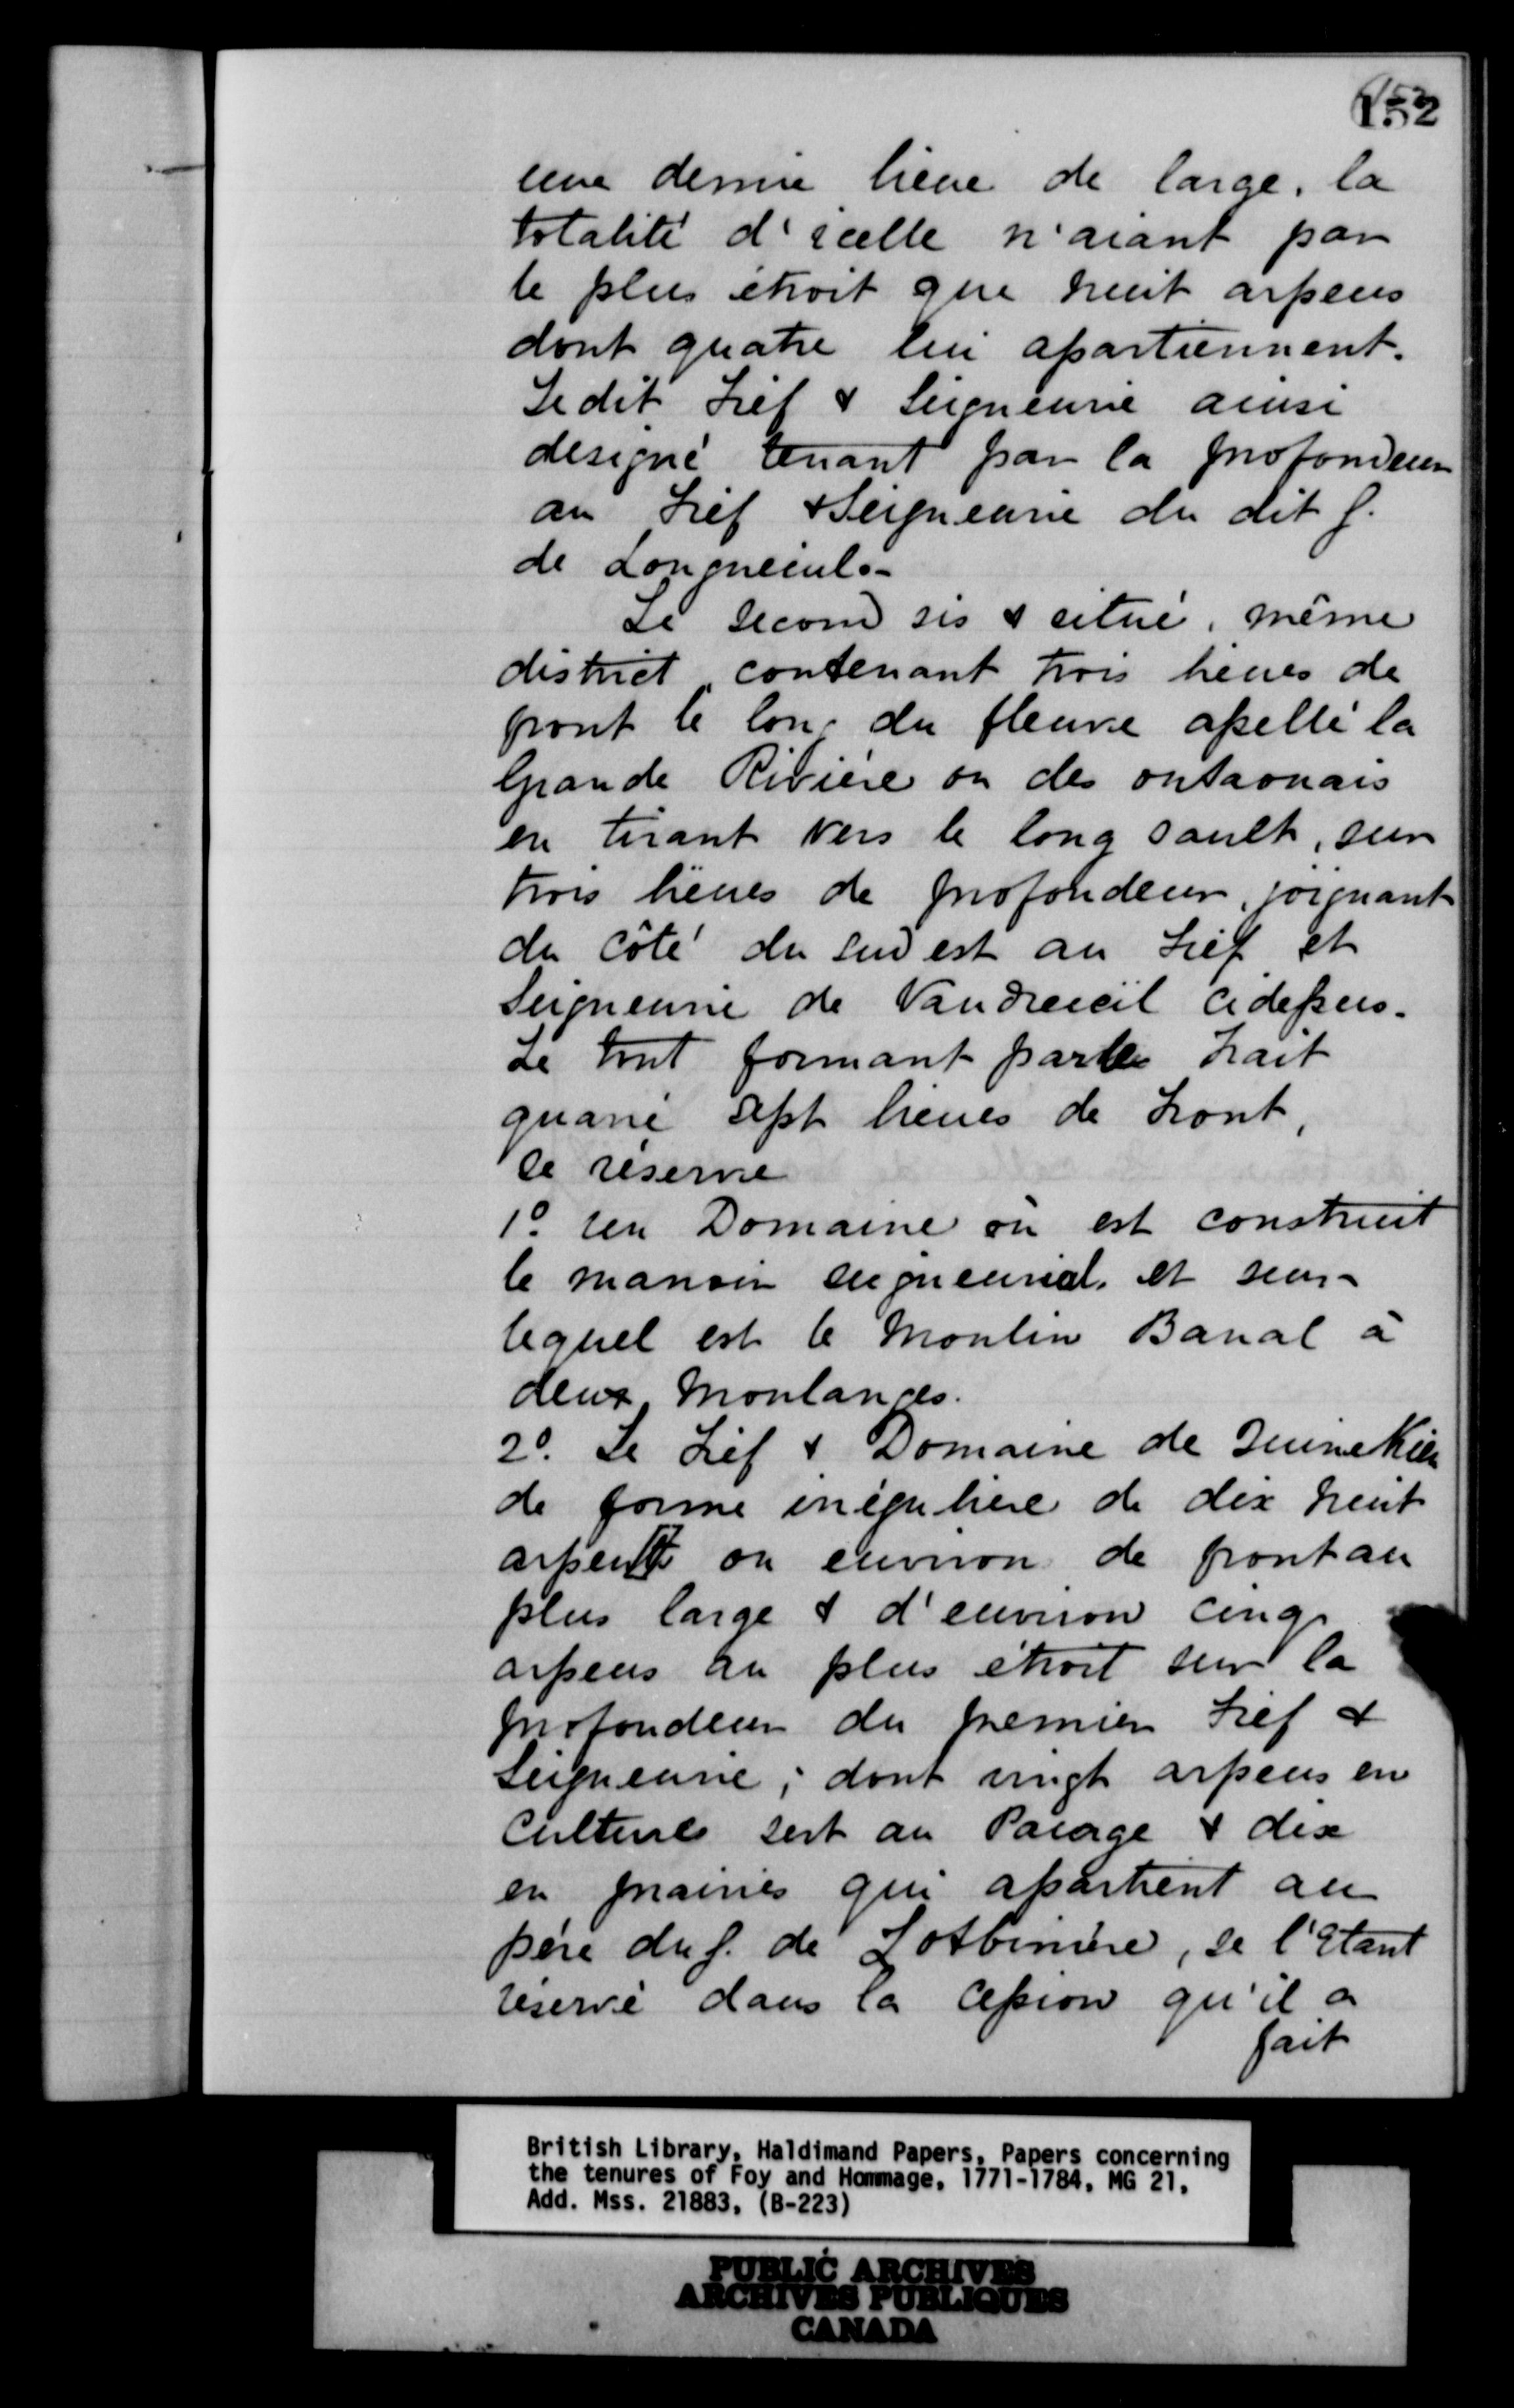 152
une demie lieue de large, la
totalité d'icelle n'aiant par
le plus étroit que huit arpens
dont quatre lui apartiennent.
Le dit Fief & Seigneurie ainsi
designé tenant par la profondeur
au Fief & Seigneurie du dit S.
de Longueuil.-
Le second sis & situé, même
district, contenant trois lieues de
front le long du fleuve apellé la
Grande Riviere ou des outaouais
en tirant vers le long sault, sur
trois lieues de profondeur, joignant
du côté du sud est au Fief et
Seigneurie de Vaudreuil cidessus.
Le tout formant par le trait
quarré sept lieues de Front,
Se réserve
1º. un Domaine où est construit
le manoir seigneurial. et sur-
lequel est le Moulin Banal à
deux Moulanges.
2º. Le Fief & Domaine de
de forme irrégulière de dix huit
arpents ou environ de front au
plus large & d'environ cinq
arpens au plus étroit sur la
profondeur du premier Fief &
Seigneurie; dont vingt arpens en
Culture sert au Pacage & dix
en prairies qui apartient au
père du S. de Lotbinière, se l'Etant
réservé dans la Cession qu'il a
fait
British Library, Haldimand Papers, Papers concerning
the tenures of Foy and Hommage, 1771-1784, MG 21,
Add. Mss. 21883, (B-223)
PUBLIC ARCHIVES
ARCHIVES PUBLIQUES
CANADA